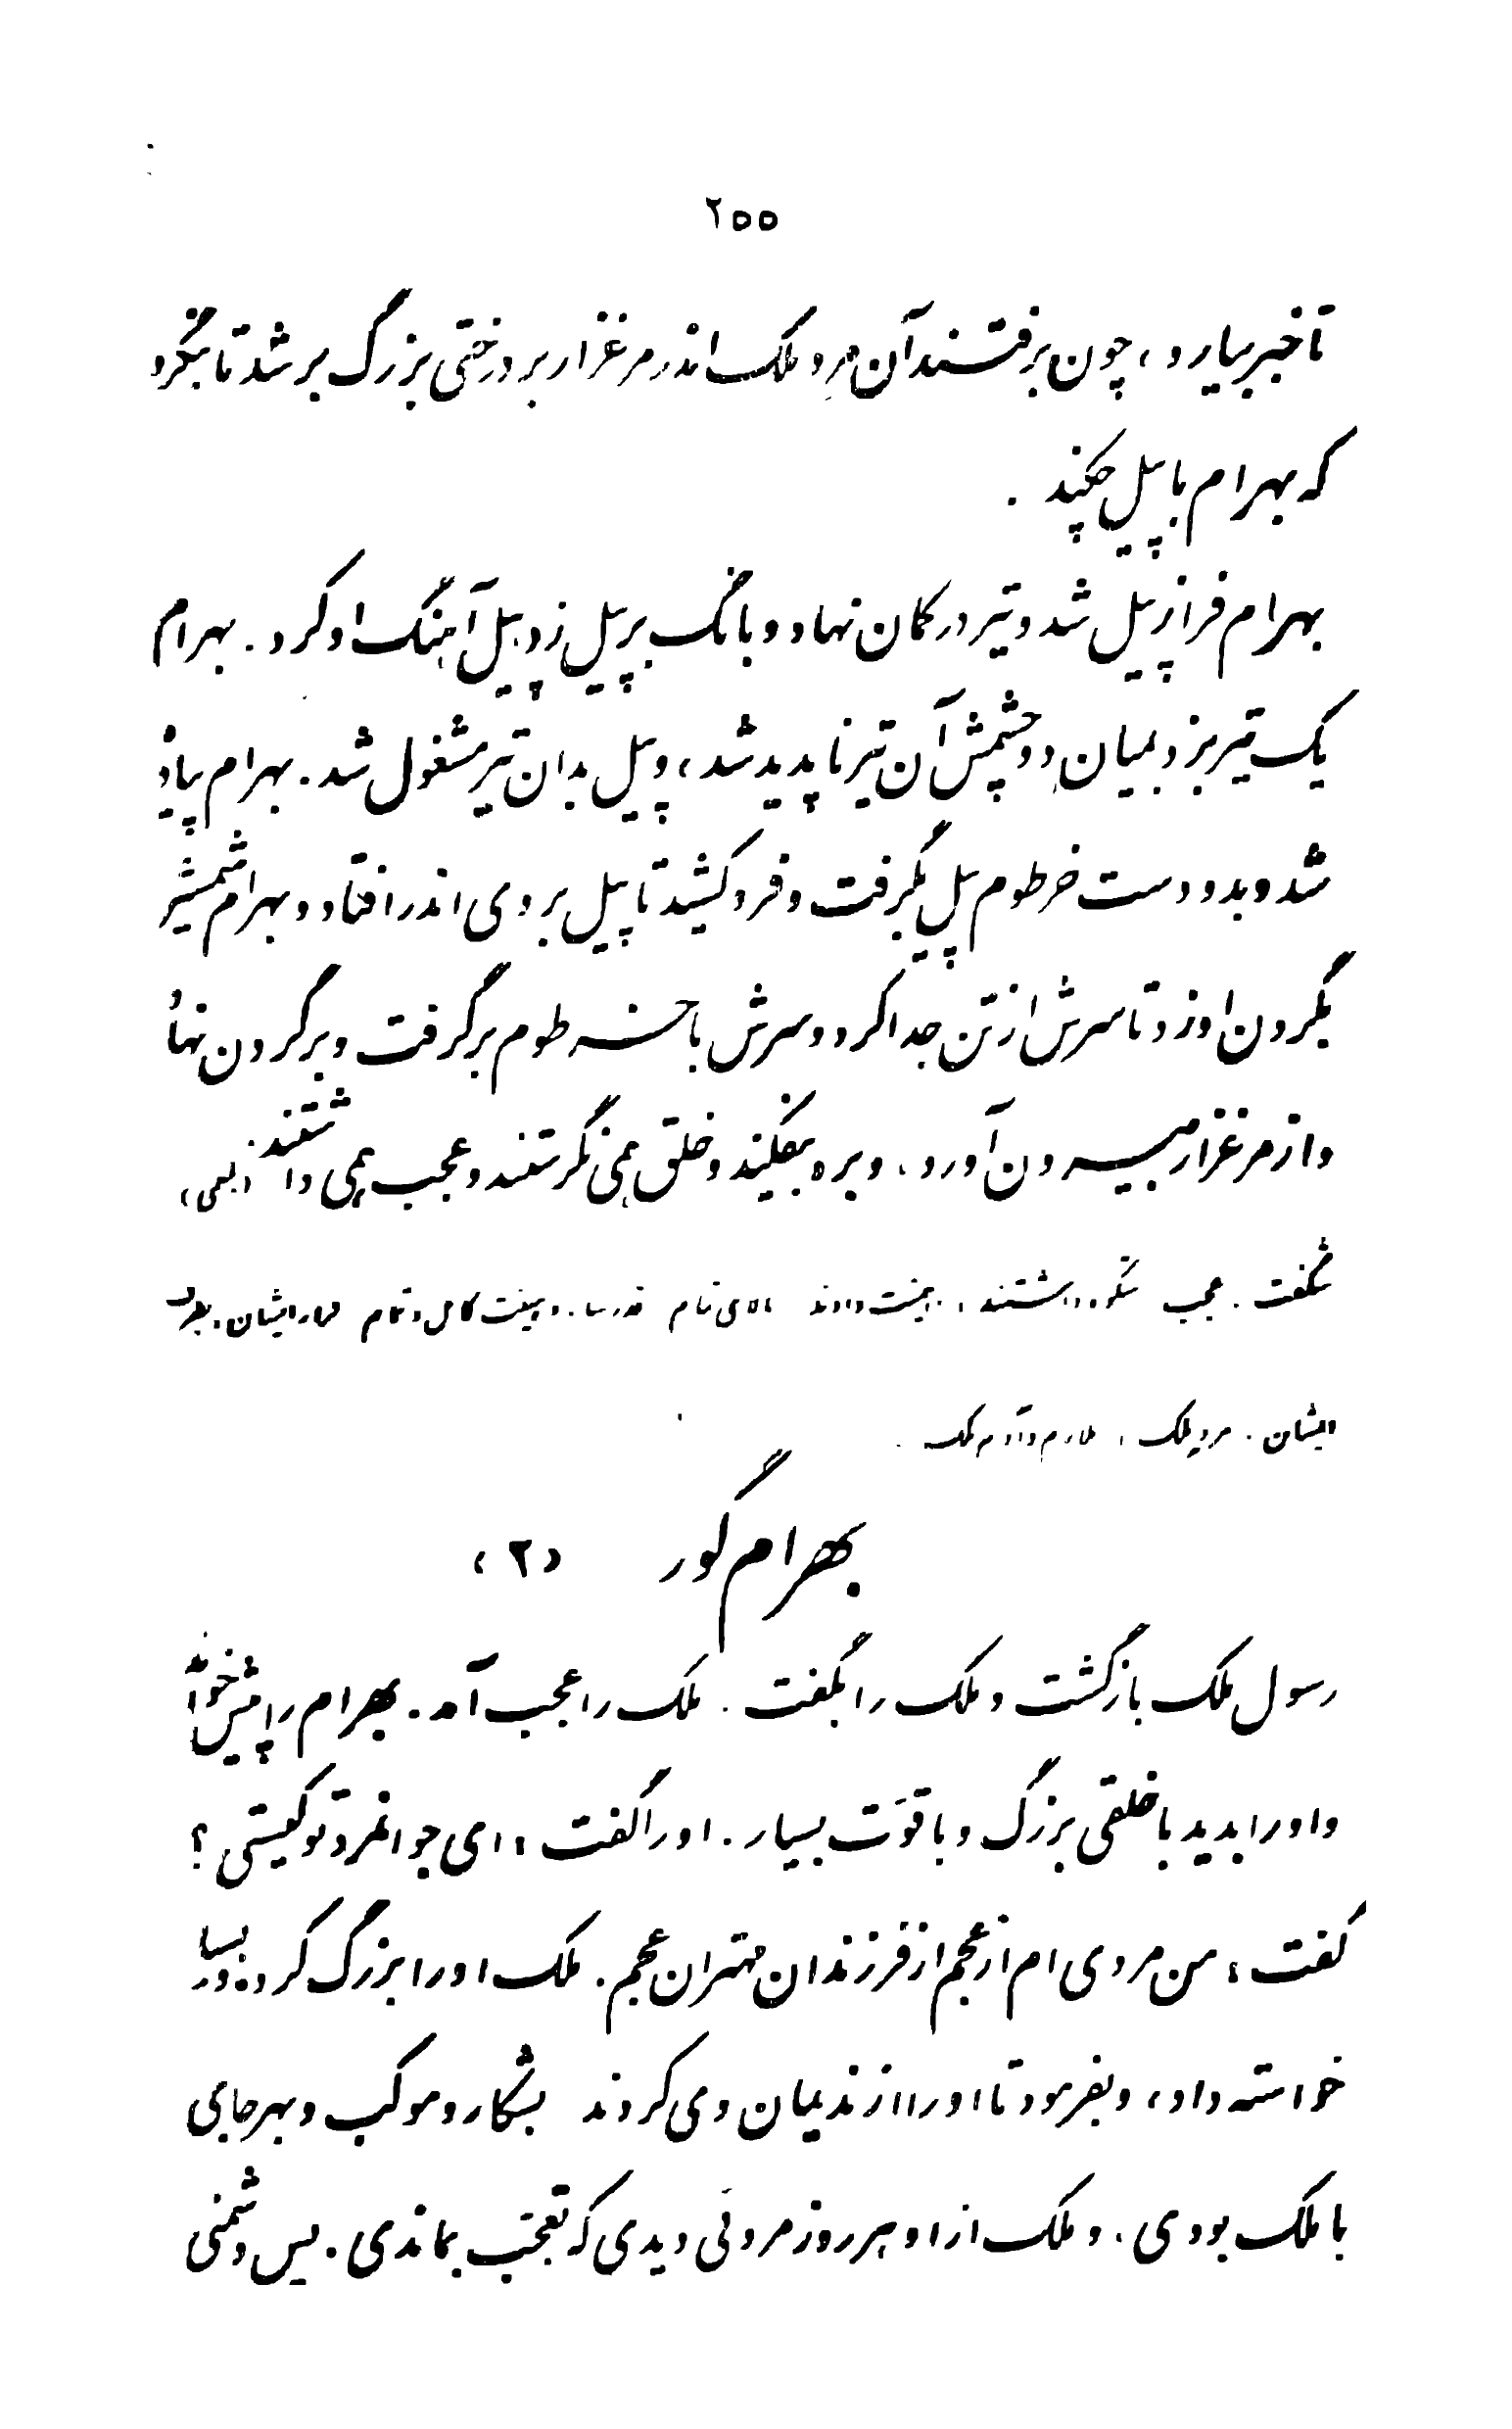 ۲۵۵
تا خبر بیارد، چون برفتند آن مرد ملک اندر مرغزار بر درختی بزرگ بر شد تا بنگرد
که بهرام با پیل چکند .
بهرام فراز پیل شد و تیر در کمان نهاد و بانگ بر پیل زد پیل آهنگ او کرد. بهرام
یک تیر بزد بمیان دو چشمش آن تیر ناپدید شد، و پیل بدان تیر مشغول شد. بهرام پیاده
شد و بدو دست خرطوم پیل بگرفت و فرو کشید تا پیل بروی اندر افتاد و بهرام شمشیر
بگردن او زد تا سرش از تن جدا کرد و سرش با خرطوم برگرفت و بر گردن نهاد
و از مرغزار بیرون آورد. و بره بفکند و خلق همی نگرستند و عجب همی داشتند. (بلعمی)
شگفت . عجب داشتند کامل و تمام ایشان .
ایشان . مرد ملک ،
بهرام گور (۲)
رسول ملک بازگشت و ملک را بگفت . ملک را عجب آمد. بهرام را پیش خواند
و او را بدید با خلقی بزرگ و با قوّت بسیار. او را گفت ، ای جوانمرد تو کیستی ؟
گفت ، من مردی ام از عجم از فرزندان مهتران عجم. ملک او را بزرگ کرد. و بسیار
خواسته داد، و بفرمود تا او را از ندیمان وی کردند بشکار و موکب و بهر جای
با ملک بودی. و ملک از او هر روز مردئی دیدی که تعجّب بماندی. پس دشمنی